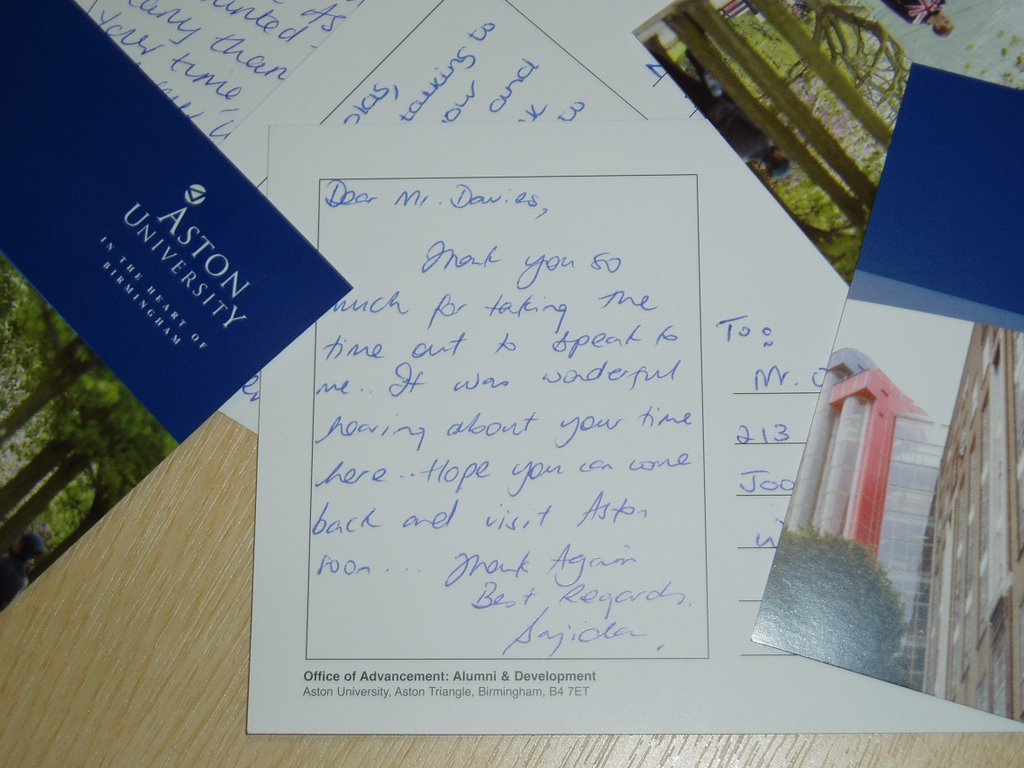 your time
talking to
and
to
ASTON
UNIVERSITY
IN THE HEART OF
BIRMINGHAM
Dear Mr. Davies,
Thank you so
much for taking the
time out to speak to
me.. It was wonderful
hearing about your time
here.. Hope you can come
back and visit Aston
soon.... Thank Again
Best Regards.
Sajida.
Office of Advancement: Alumni & Development
Aston University, Aston Triangle, Birmingham, B4 7ET
To:
Mr.
213